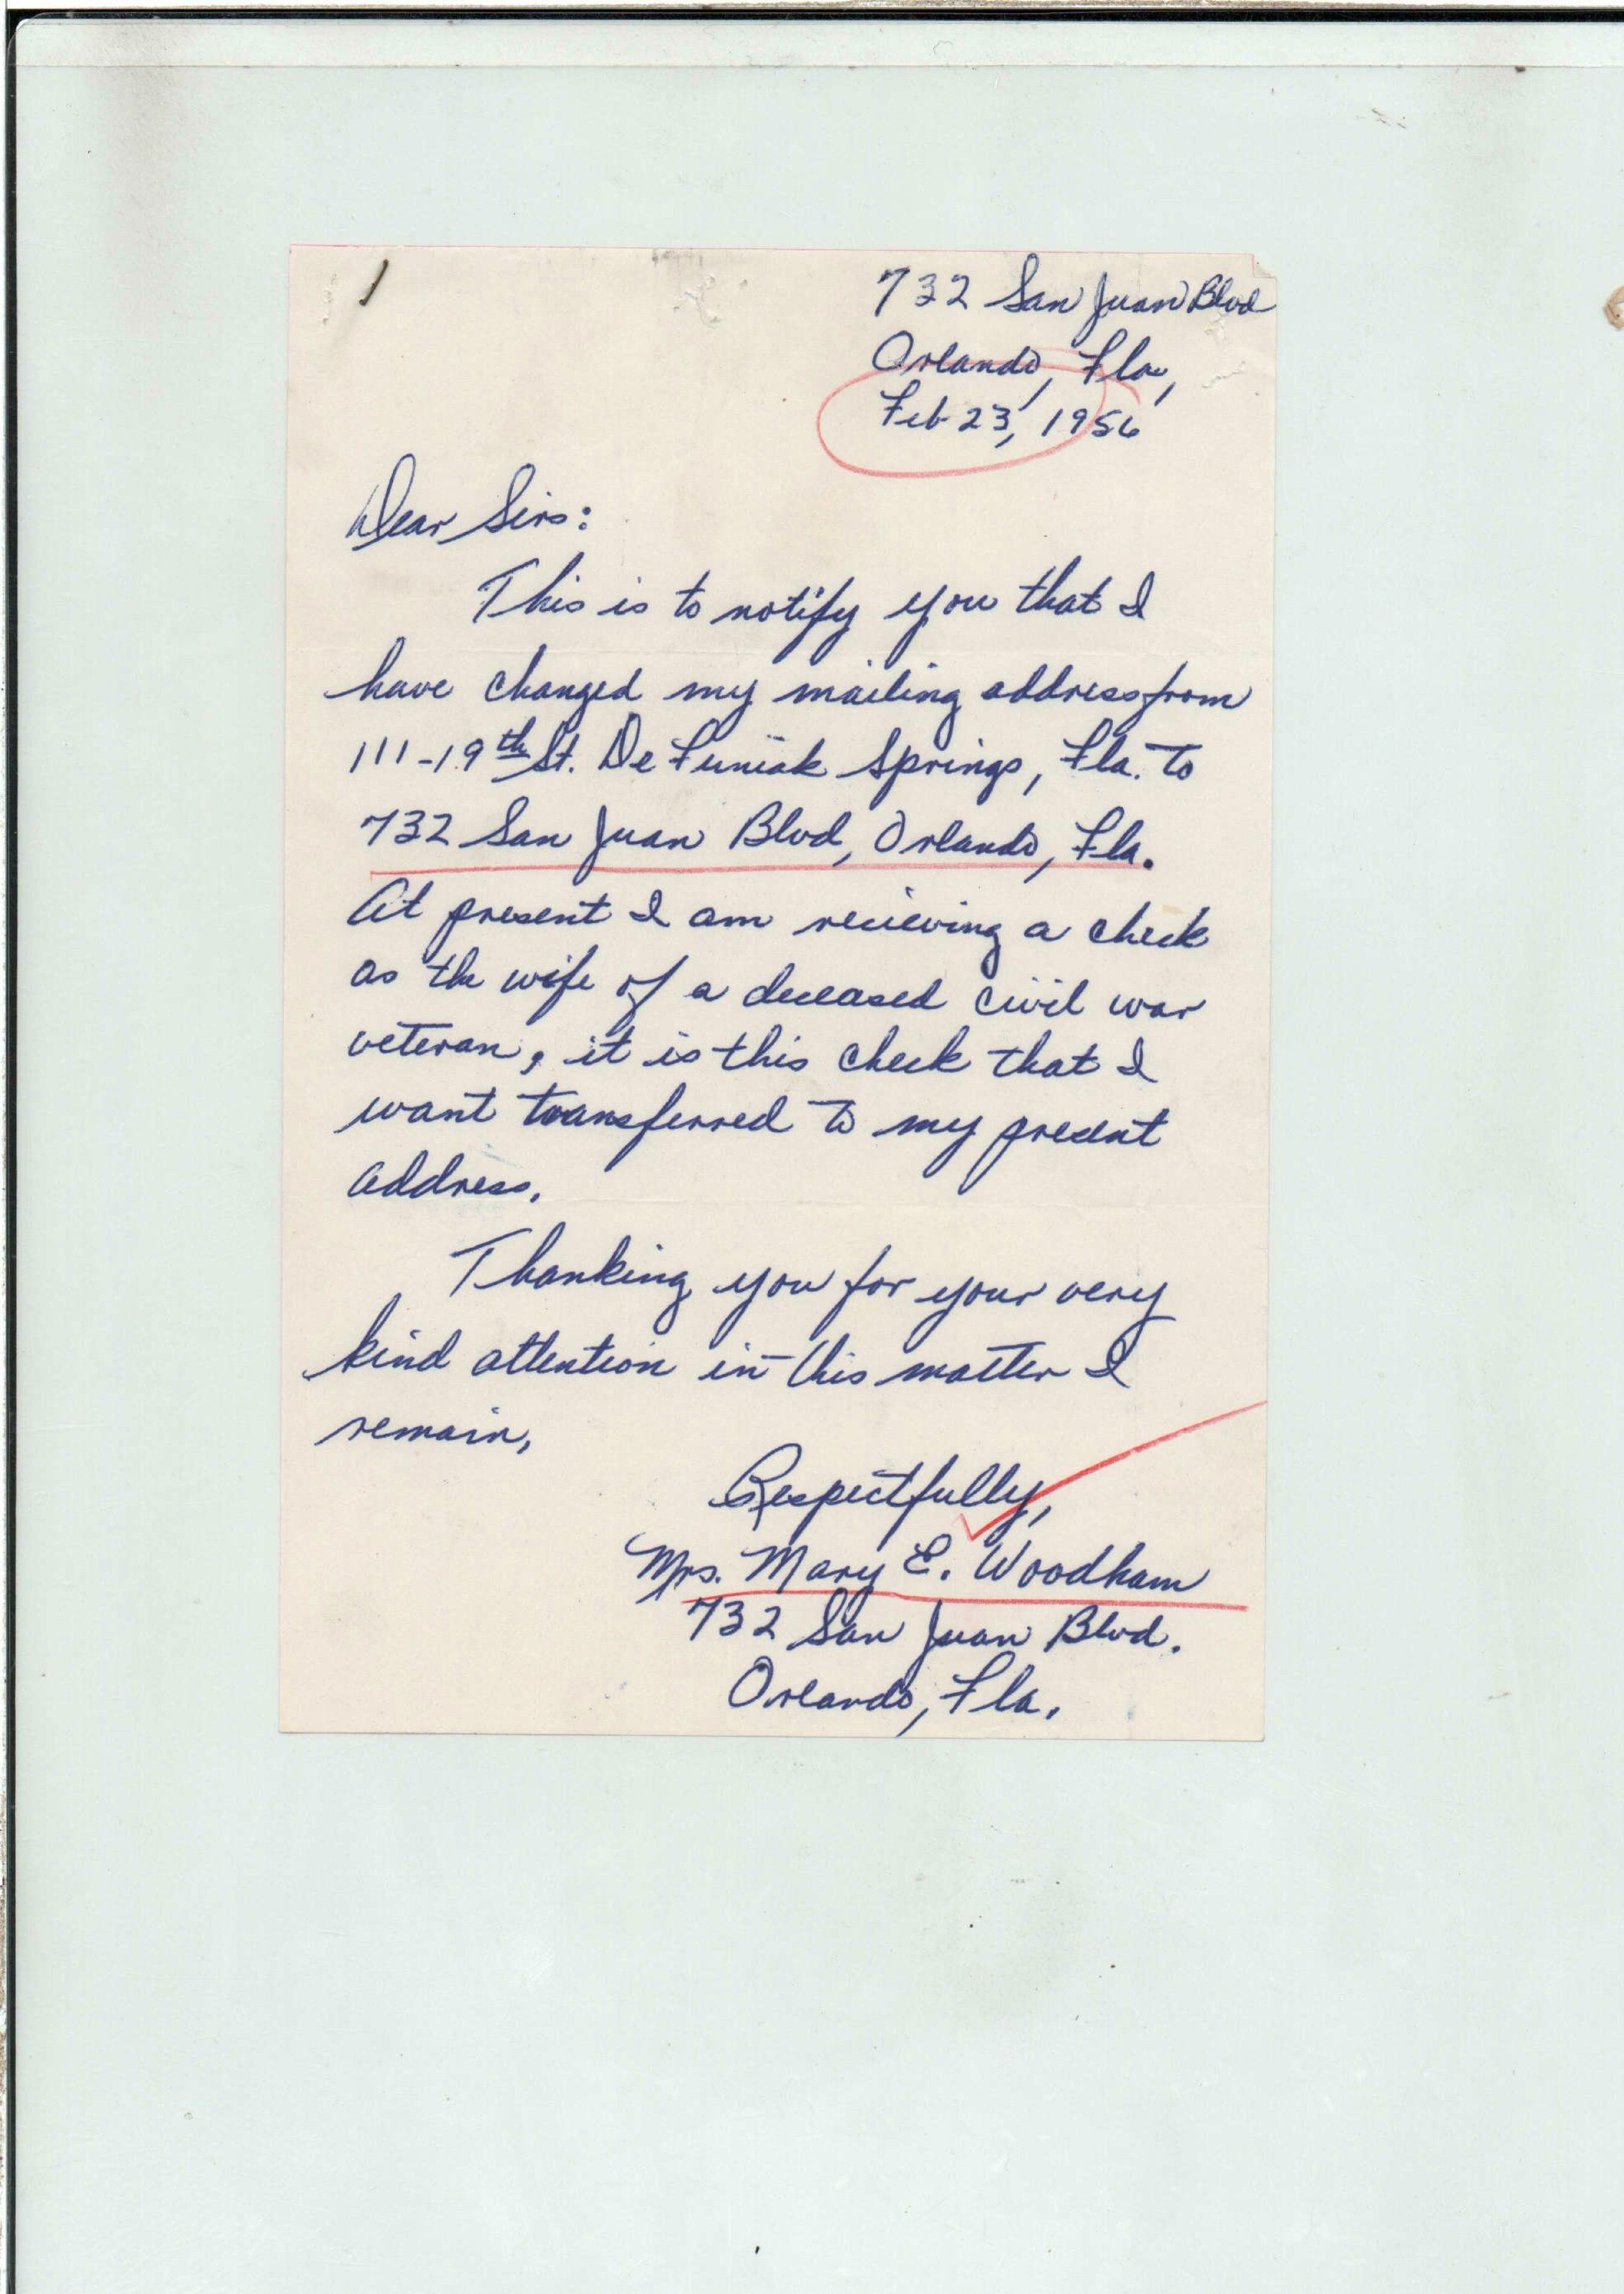 732 San Juan Blvd
Orlando, Fla,
Feb 23, 1956
Dear Sirs:
This is to notify you that I
have changed my mailing address from
111-19th St. De Funiak Springs, Fla. to
732 San Juan Blvd, Orlando, Fla.
At present I am recieving a check
as the wife of a deceased civil war
veteran, it is this check that I
want transferred to my present
address.
Thanking you for your very
kind attention in this matter I
remain,
Respectfully,
Mrs. Mary E. Woodham
732 San Juan Blvd.
Orlando, Fla.